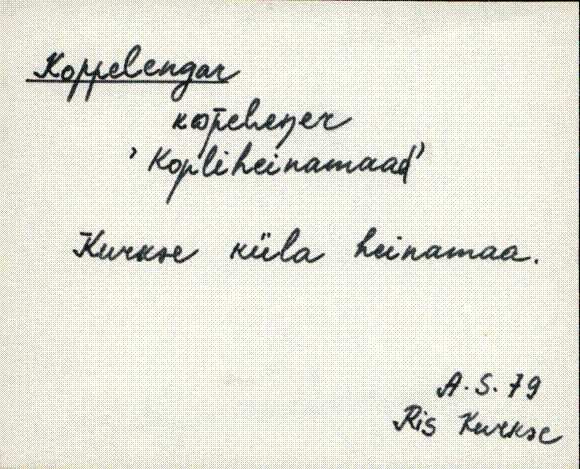 Koppelengar
kop̄eleŋer
'Kopliheinamaad'
Kurkse küla heinamaa.
A.S. 79
Ris Kurkse